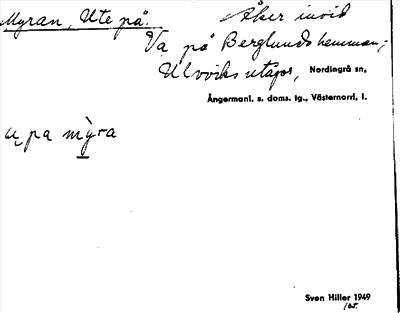 Myran, Ute på.
Åker invid
Va på Berglundshemman,
Ulvviks utägor, Nordingrå sn,
Ångermanl. s. doms. tg., Västernorrl. l.
u̜ pa mỳra
Sven Hiller 1949